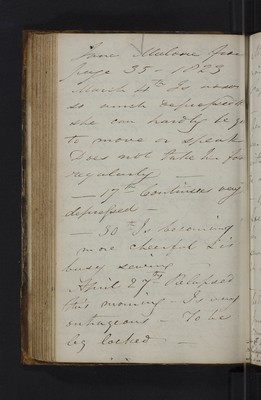 Jane Malone from
page 35 - 1823
March 4th Is now
so much depressed
she can hardly be got
to move or speak
Does not take her food
regularly —
— 17th Continues very
depressed —
— 30th Is becoming
more cheerful & is
busy sewing —
April 27th Relapsed
this morning - Is very
outrageous - To be
leg locked —